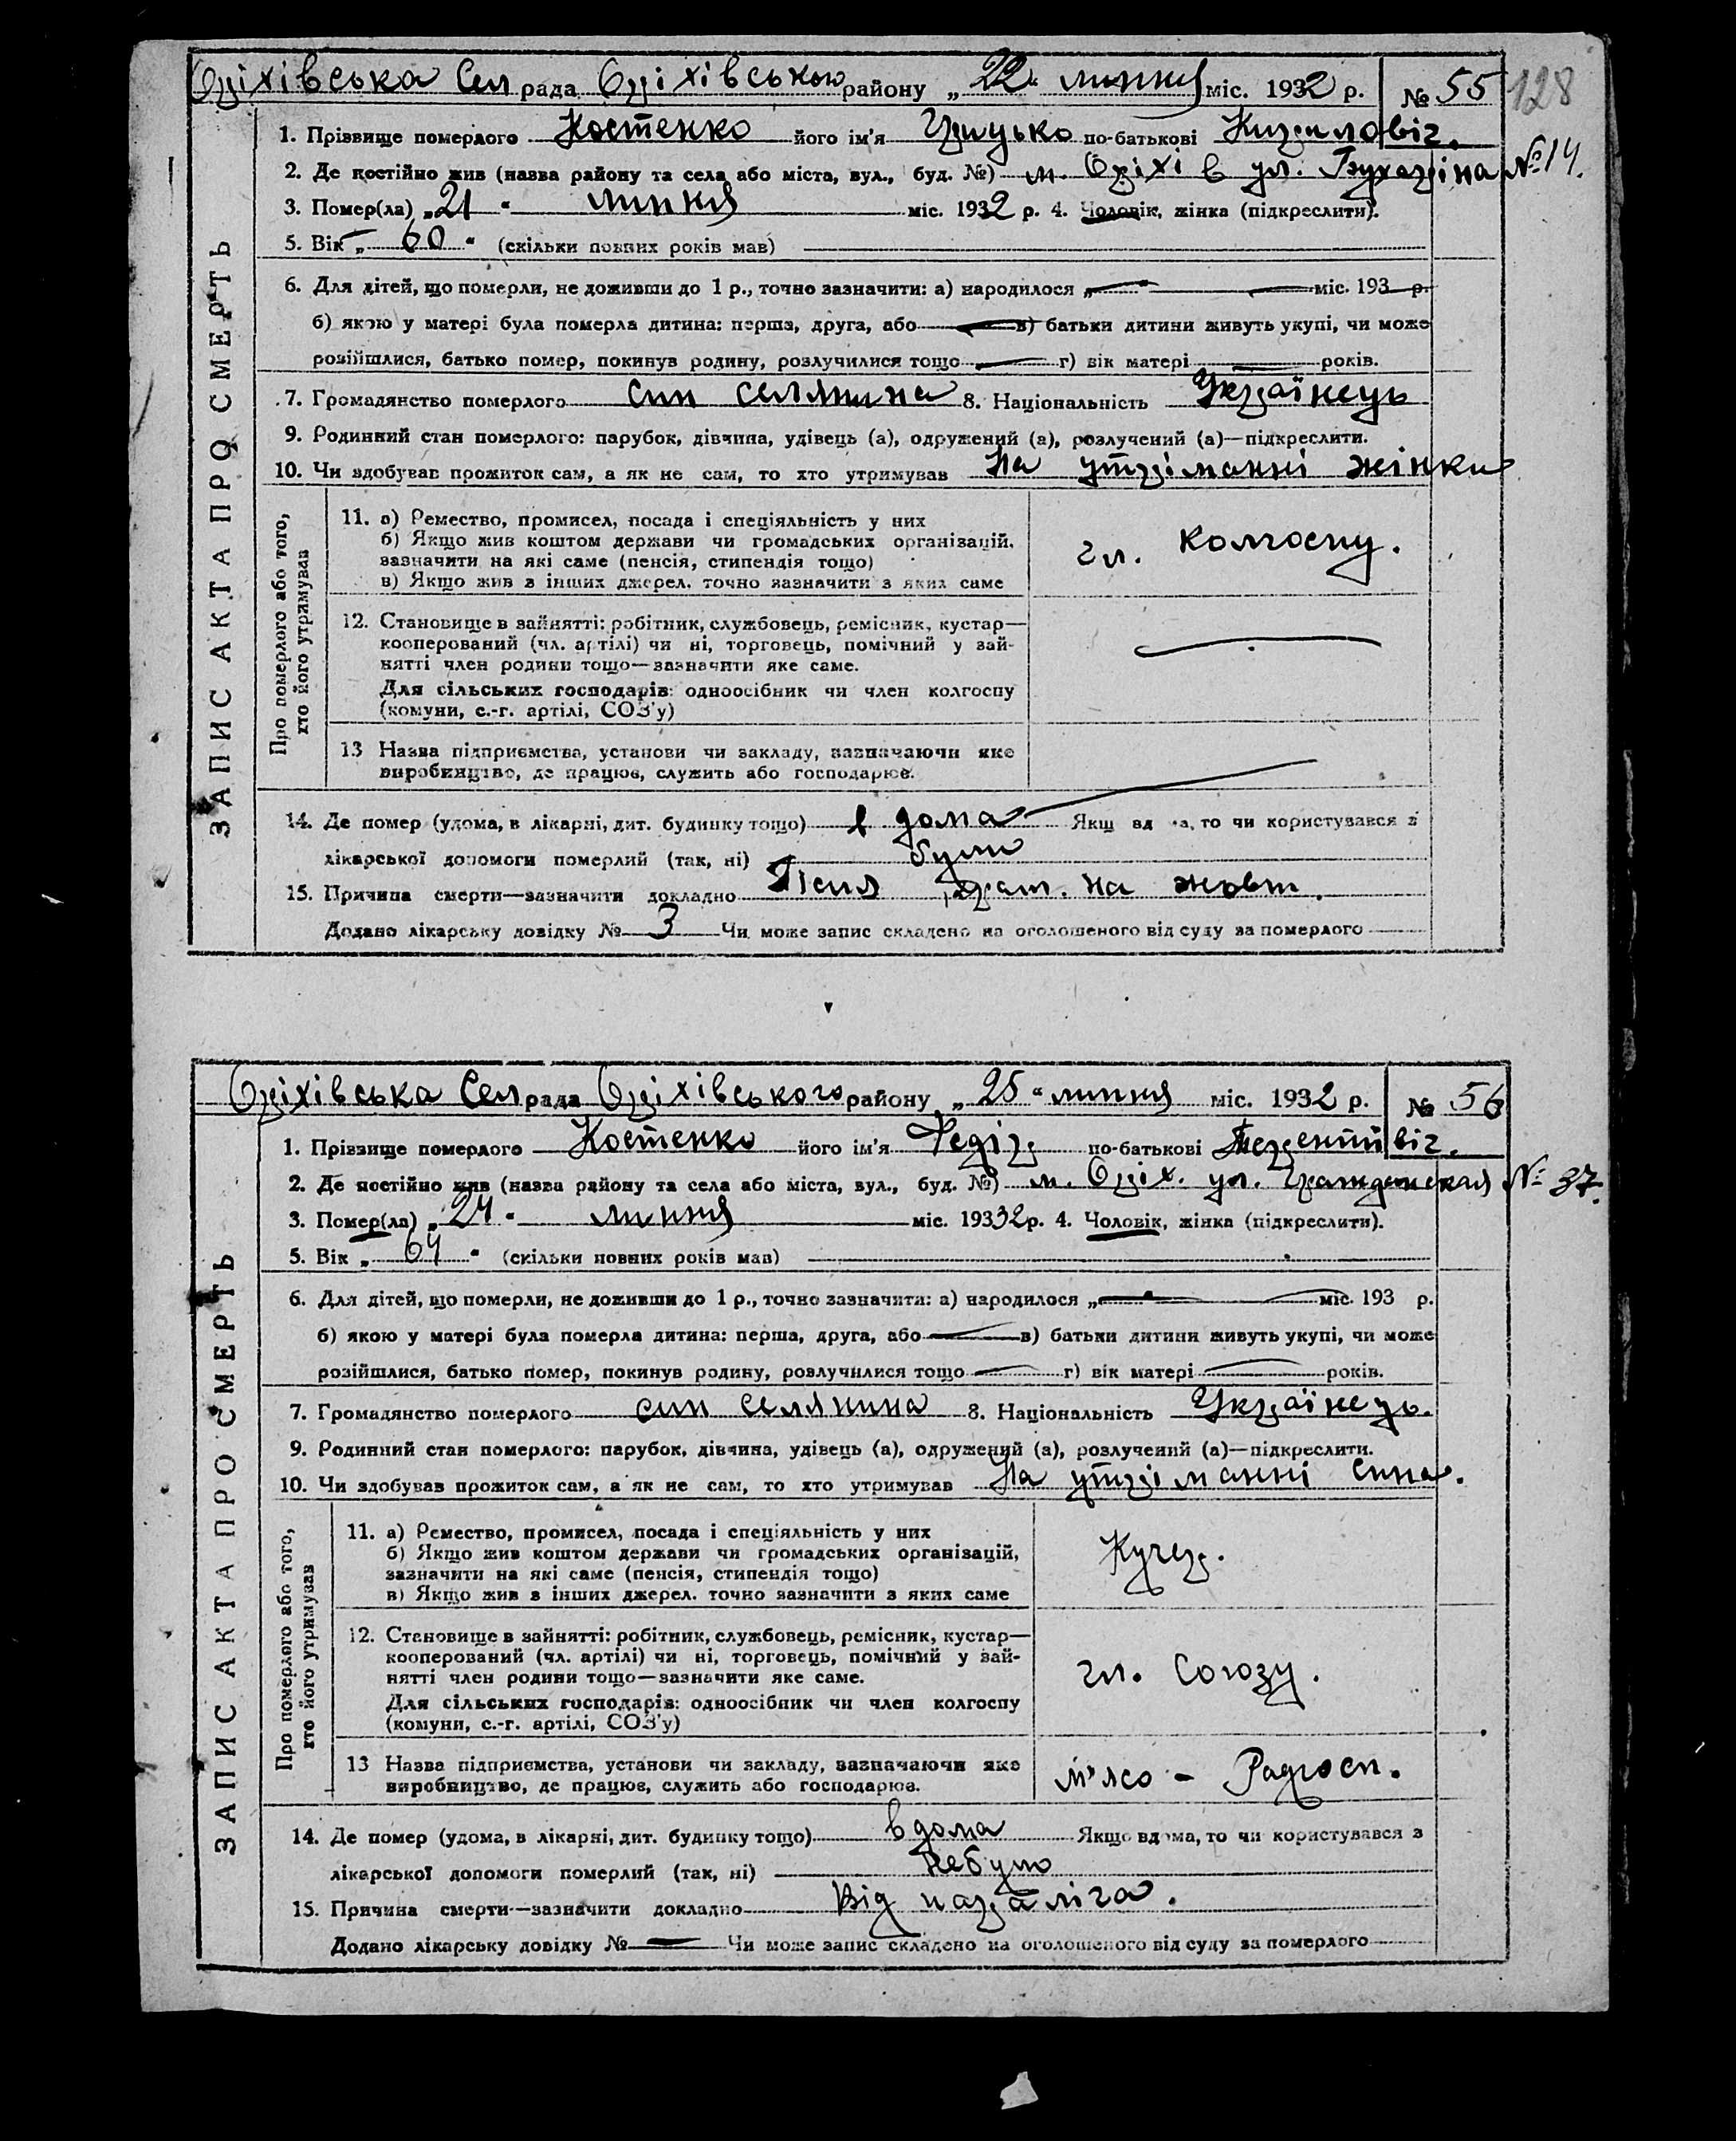 Оріхівська Сел рада Оріхівською району „22“ липня міс. 1932 р. № 55 128
1. Прізвище померлого Костенко його ім'я Грицько по-батькові Кирилович.
2. Де постійно жив (назва району та села або міста, вул., буд. №) м. Оріхів ул. Бухаріна № 14.
3. Помер(ла) „21“ липня міс. 1932 р. 4. Чоловік, жінка (підкреслити).
5. Вік „60“ (скільки повних років мав)
6. Для дітей, що померли, не доживши до 1 р., точно зазначити: а) народилося „ “ міс. 193 р.
б) якою у матері була померла дитина: перша, друга, або в) батьки дитини живуть укупі, чи може
розійшлися, батько помер, покинув родину, розлучилися тощо г) вік матері років.
7. Громадянство померлого син селянина 8. Національність Українець
9. Родинний стан померлого: парубок, дівчина, удівець (а), одружений (а), розлучений (а)—підкреслити.
10. Чи здобував прожиток сам, а як не сам, то хто утримував На утріманні жінки
ЗАПИС АКТА ПРО СМЕРТЬ
Про померлого або того,
хто його утримував
11. а) Ремество, промисел, посада і спеціяльність у них
б) Якщо жив коштом держави чи громадських організацій,
зазначити на які саме (пенсія, стипендія тощо)
в) Якщо жив з інших джерел. точно зазначити з яких саме
чл. колгоспу.
12. Становище в зайнятті: робітник, службовець, ремісник, кустар—
кооперований (чл. артілі) чи ні, торговець, помічний у зай-
нятті член родини тощо—зазначити яке саме.
Для сільських господарів: одноосібник чи член колгоспу
(комуни, с.-г. артілі, СОЗ'у)
13 Назва підприємства, установи чи закладу, зазначаючи яке
виробництво, де працює, служить або господарює.
14. Де помер (удома, в лікарні, дит. будинку тощо) в дома Якщ вд ма, то чи користувався з
лікарської допомоги померлий (так, ні) було
15. Причина смерти—зазначити докладно Після на
Додано лікарську довідку № 3 Чи може запис складено на оголошеного від суду за померлого
Оріхівська Сел рада Оріхівського району „25“ липня міс. 1932 р. № 56
1. Прізвище померлого Костенко його ім'я Федір по-батькові
2. Де постійно жив (назва району та села або міста, вул., буд. №) м. Оріх. ул. Гражданская № 37.
3. Помер(ла) „24“ липня міс. 19332р. 4. Чоловік, жінка (підкреслити).
5. Вік „64“ (скільки повних років мав)
6. Для дітей, що померли, не доживши до 1 р., точно зазначити: а) народилося „ “ міс. 193 р.
б) якою у матері була померла дитина: перша, друга, або в) батьки дитини живуть укупі, чи може
розійшлися, батько помер, покинув родину, розлучилися тощо г) вік матері років.
7. Громадянство померлого син селянина 8. Національність Українець.
9. Родинний стан померлого: парубок, дівчина, удівець (а), одружений (а), розлучений (а)—підкреслити.
10. Чи здобував прожиток сам, а як не сам, то хто утримував На утріманні сина.
ЗАПИС АКТА ПРО СМЕРТЬ
Про померлого або того,
хто його утримував
11. а) Ремество, промисел, посада і спеціяльність у них
б) Якщо жив коштом держави чи громадських організацій,
зазначити на які саме (пенсія, стипендія тощо)
в) Якщо жив з інших джерел. точно зазначити з яких саме
Кучер.
12. Становище в зайнятті: робітник, службовець, ремісник, кустар—
кооперований (чл. артілі) чи ні, торговець, помічний у зай-
нятті член родини тощо—зазначити яке саме.
Для сільських господарів: одноосібник чи член колгоспу
(комуни, с.-г. артілі, СОЗ'у)
чл. Союзу.
13 Назва підприємства, установи чи закладу, зазначаючи яке
виробництво, де працює, служить або господарює.
м'ясо - Радгосп.
14. Де помер (удома, в лікарні, дит. будинку тощо) в дома Якщо вдома, то чи користувався з
лікарської допомоги померлий (так, ні) небуло
15. Причина смерти—зазначити докладно Від параліча.
Додано лікарську довідку № Чи може запис складено на оголошеного від суду за померлого